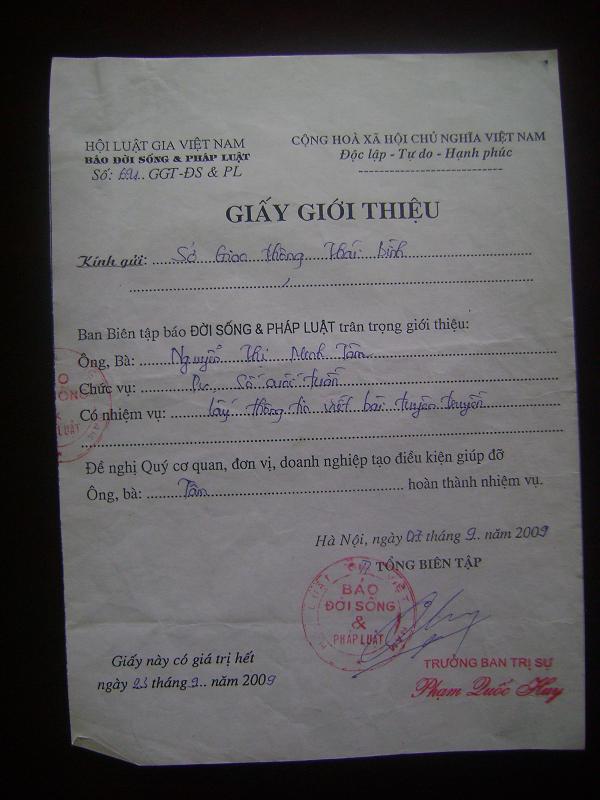 HỘI LUẬT GIA VIỆT NAM
BÁO ĐỜI SỐNG & PHÁP LUẬT
Số: GGT-ĐS & PL
CỘNG HOÀ XÃ HỘI CHỦ NGHĨA VIỆT NAM
Độc lập - Tự do - Hạnh phúc
GIẤY GIỚI THIỆU
Kính gửi: Sở Giao thông Thái Bình
Ban Biên tập báo ĐỜI SỐNG & PHÁP LUẬT trân trọng giới thiệu:
Ông, Bà: Nguyễn Thị Minh Tâm
Chức vụ:
Có nhiệm vụ: lấy thông tin viết bài tuyên truyền
Đề nghị Quý cơ quan, đơn vị, doanh nghiệp tạo điều kiện giúp đỡ
Ông, bà: Tâm hoàn thành nhiệm vụ.
Hà Nội, ngày 07 tháng 9 năm 2009
TỔNG BIÊN TẬP
BÁO
ĐỜI SỐNG
&
PHÁP LUẬT
TRƯỞNG BAN TRỊ SỰ
Phạm Quốc Huy
Giấy này có giá trị hết
ngày 23 tháng 9 năm 2009